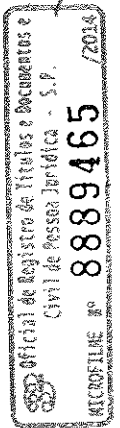 8º Oficial de Registro de Títulos e Documentos e
Civil de Pessoa Jurídica - S.P.
8889465
MICROFILME Nº /2014